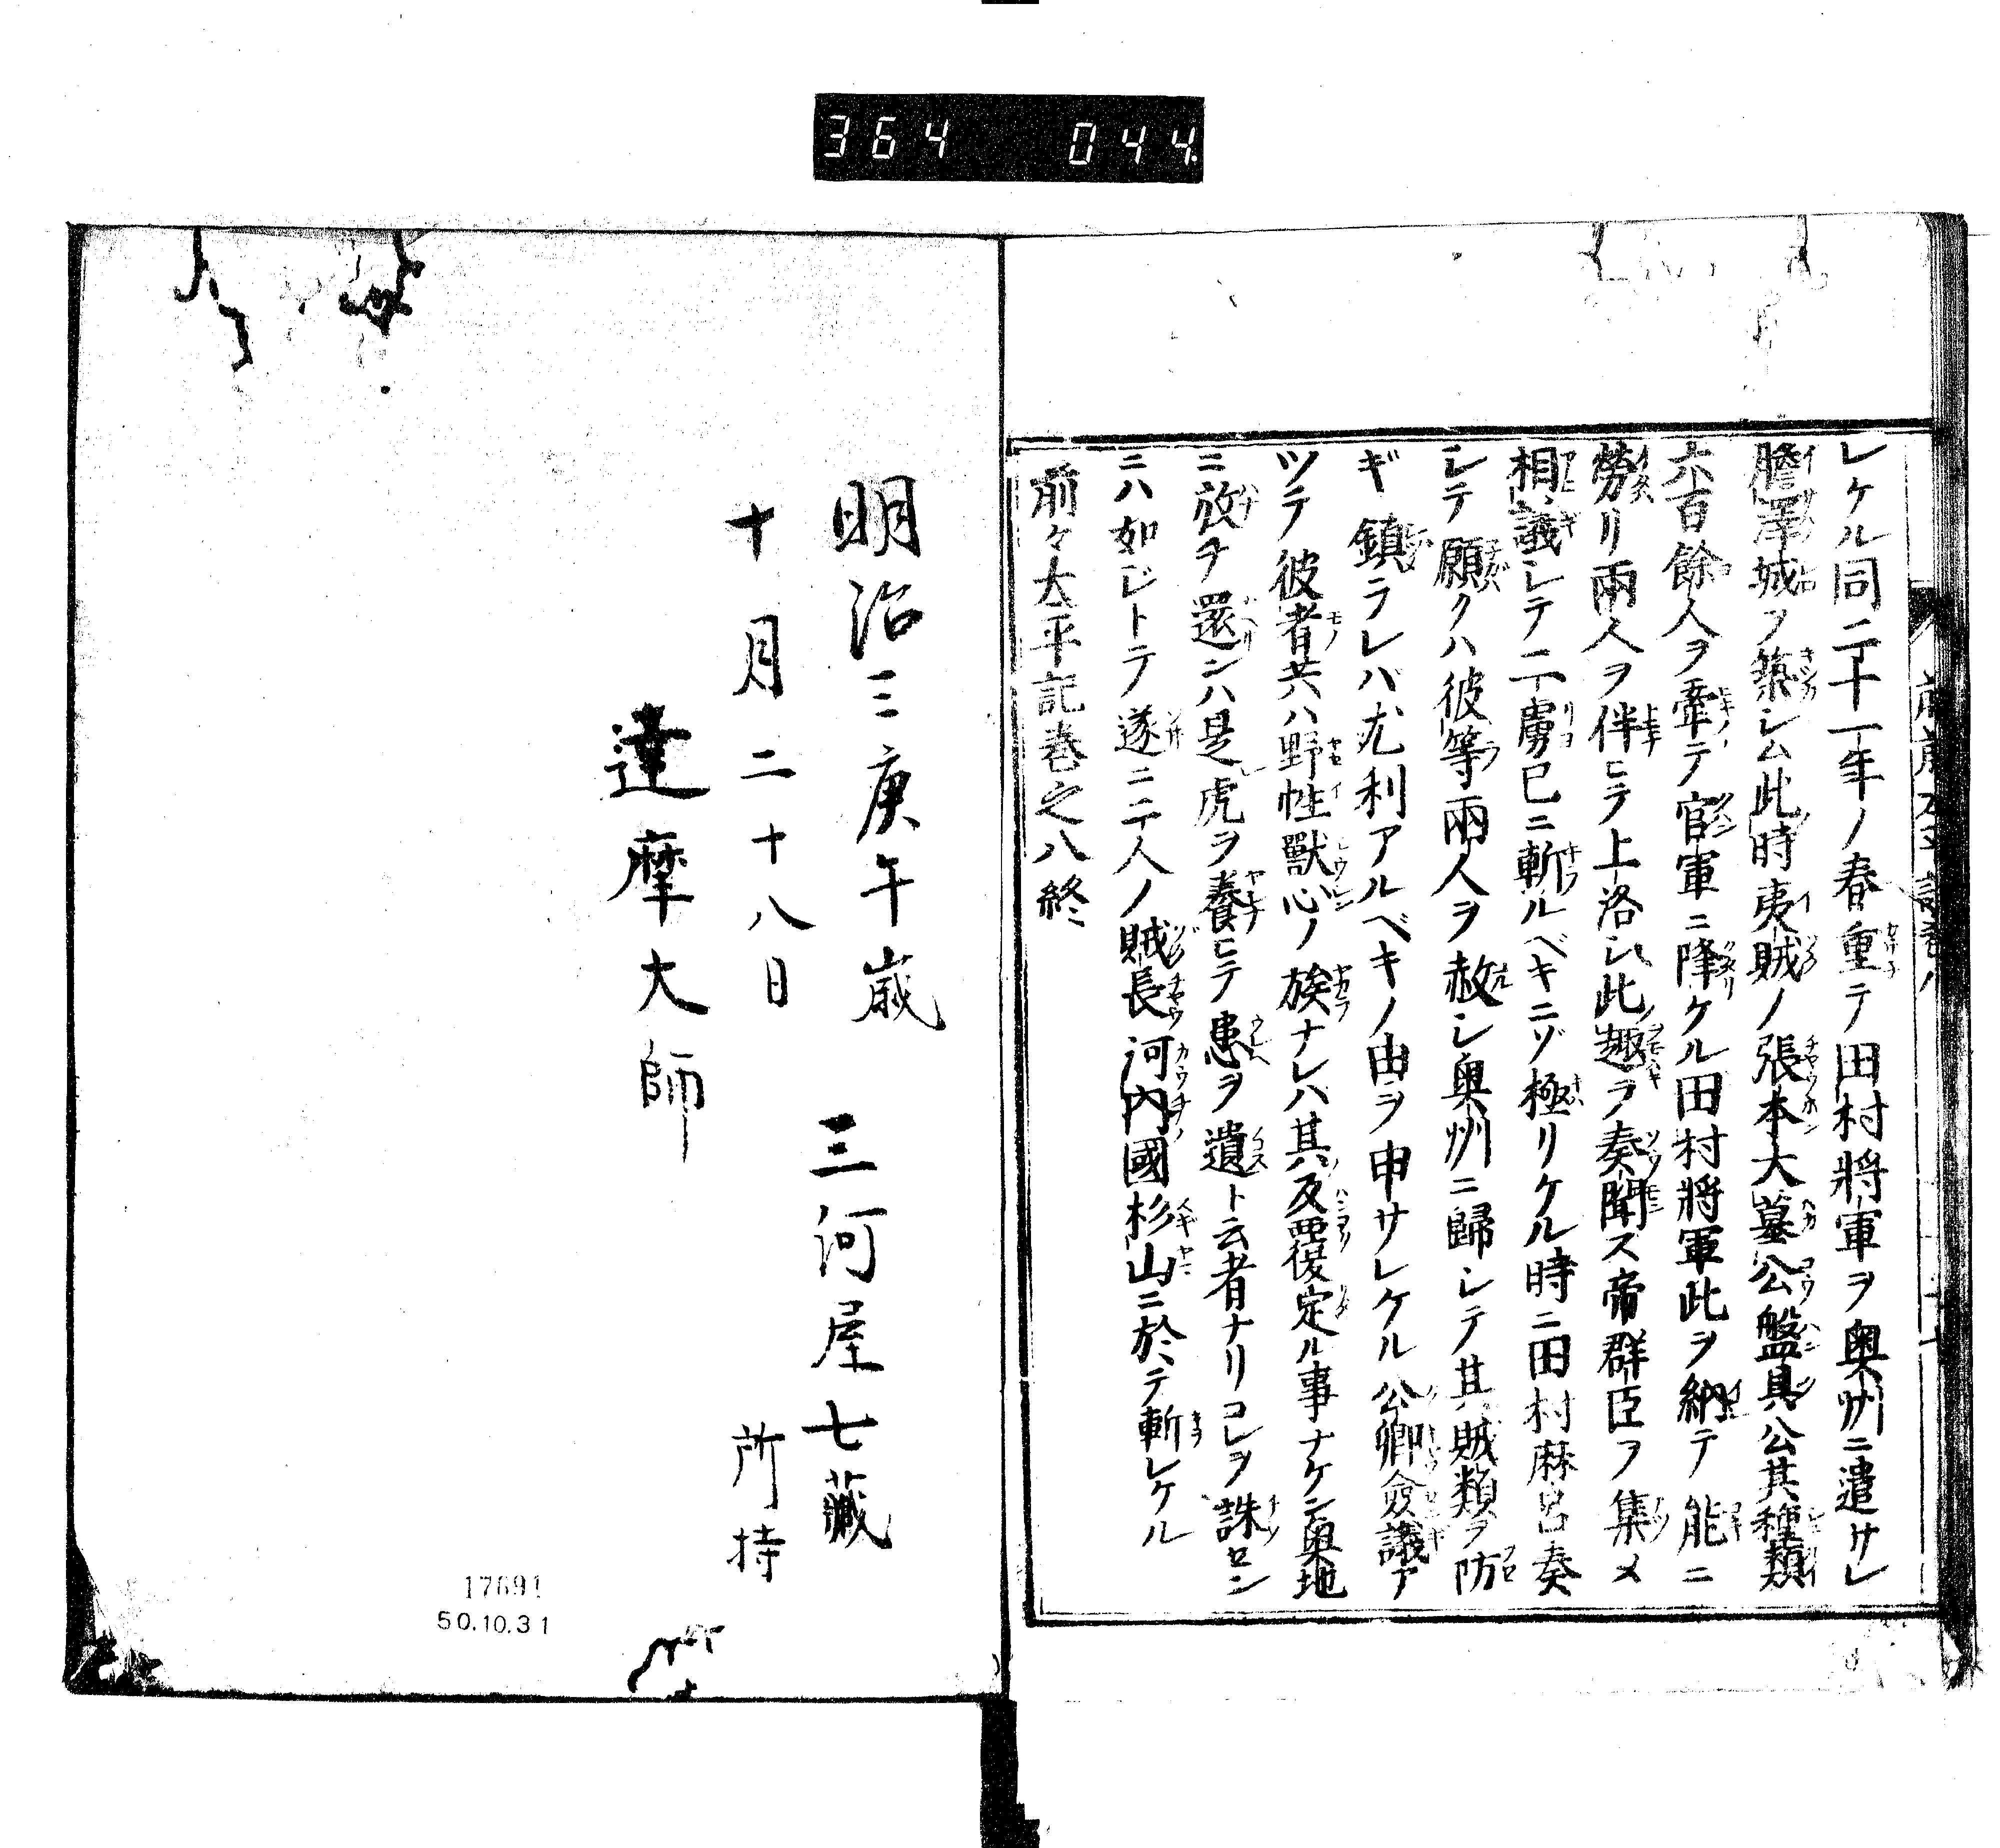 364 044
レケル同二十一年ノ春重テ田村將軍ヲ奥州ニ遣サレ
膽澤城ヲ築シム此時夷賊ノ張本大墓公盤具公其種類
六百餘人ヲ牽テ官軍ニ降ケル田村將軍此ヲ納テ能ニ
勞リ兩人ヲ伴ヒテ上洛シ此趣ヲ奏聞ス帝群臣ヲ集メ
相議シテ二虜已ニ斬ルベキニゾ極リケル時ニ田村麻呂奏
シテ願クハ彼等兩人ヲ赦シ奥州ニ歸シテ其賊類ヲ防
ギ鎮ラレバ尤利アルベキノ由ヲ申サレケル公卿僉議ア
ツテ彼者共ハ野性獸心ノ族ナレバ其反覆定ル事ナケン奥地
ニ放チ還ンハ是虎ヲ養ヒテ患ヲ遺ト云者ナリコレヲ誅センニハ
如ジトテ遂ニ二人ノ賊長河内國杉山ニ於テ斬レケル
前々太平記巻之八終
明治三庚午歳 三河屋七藏
十月二十八日 所持
達摩大師
17691
50.10.31